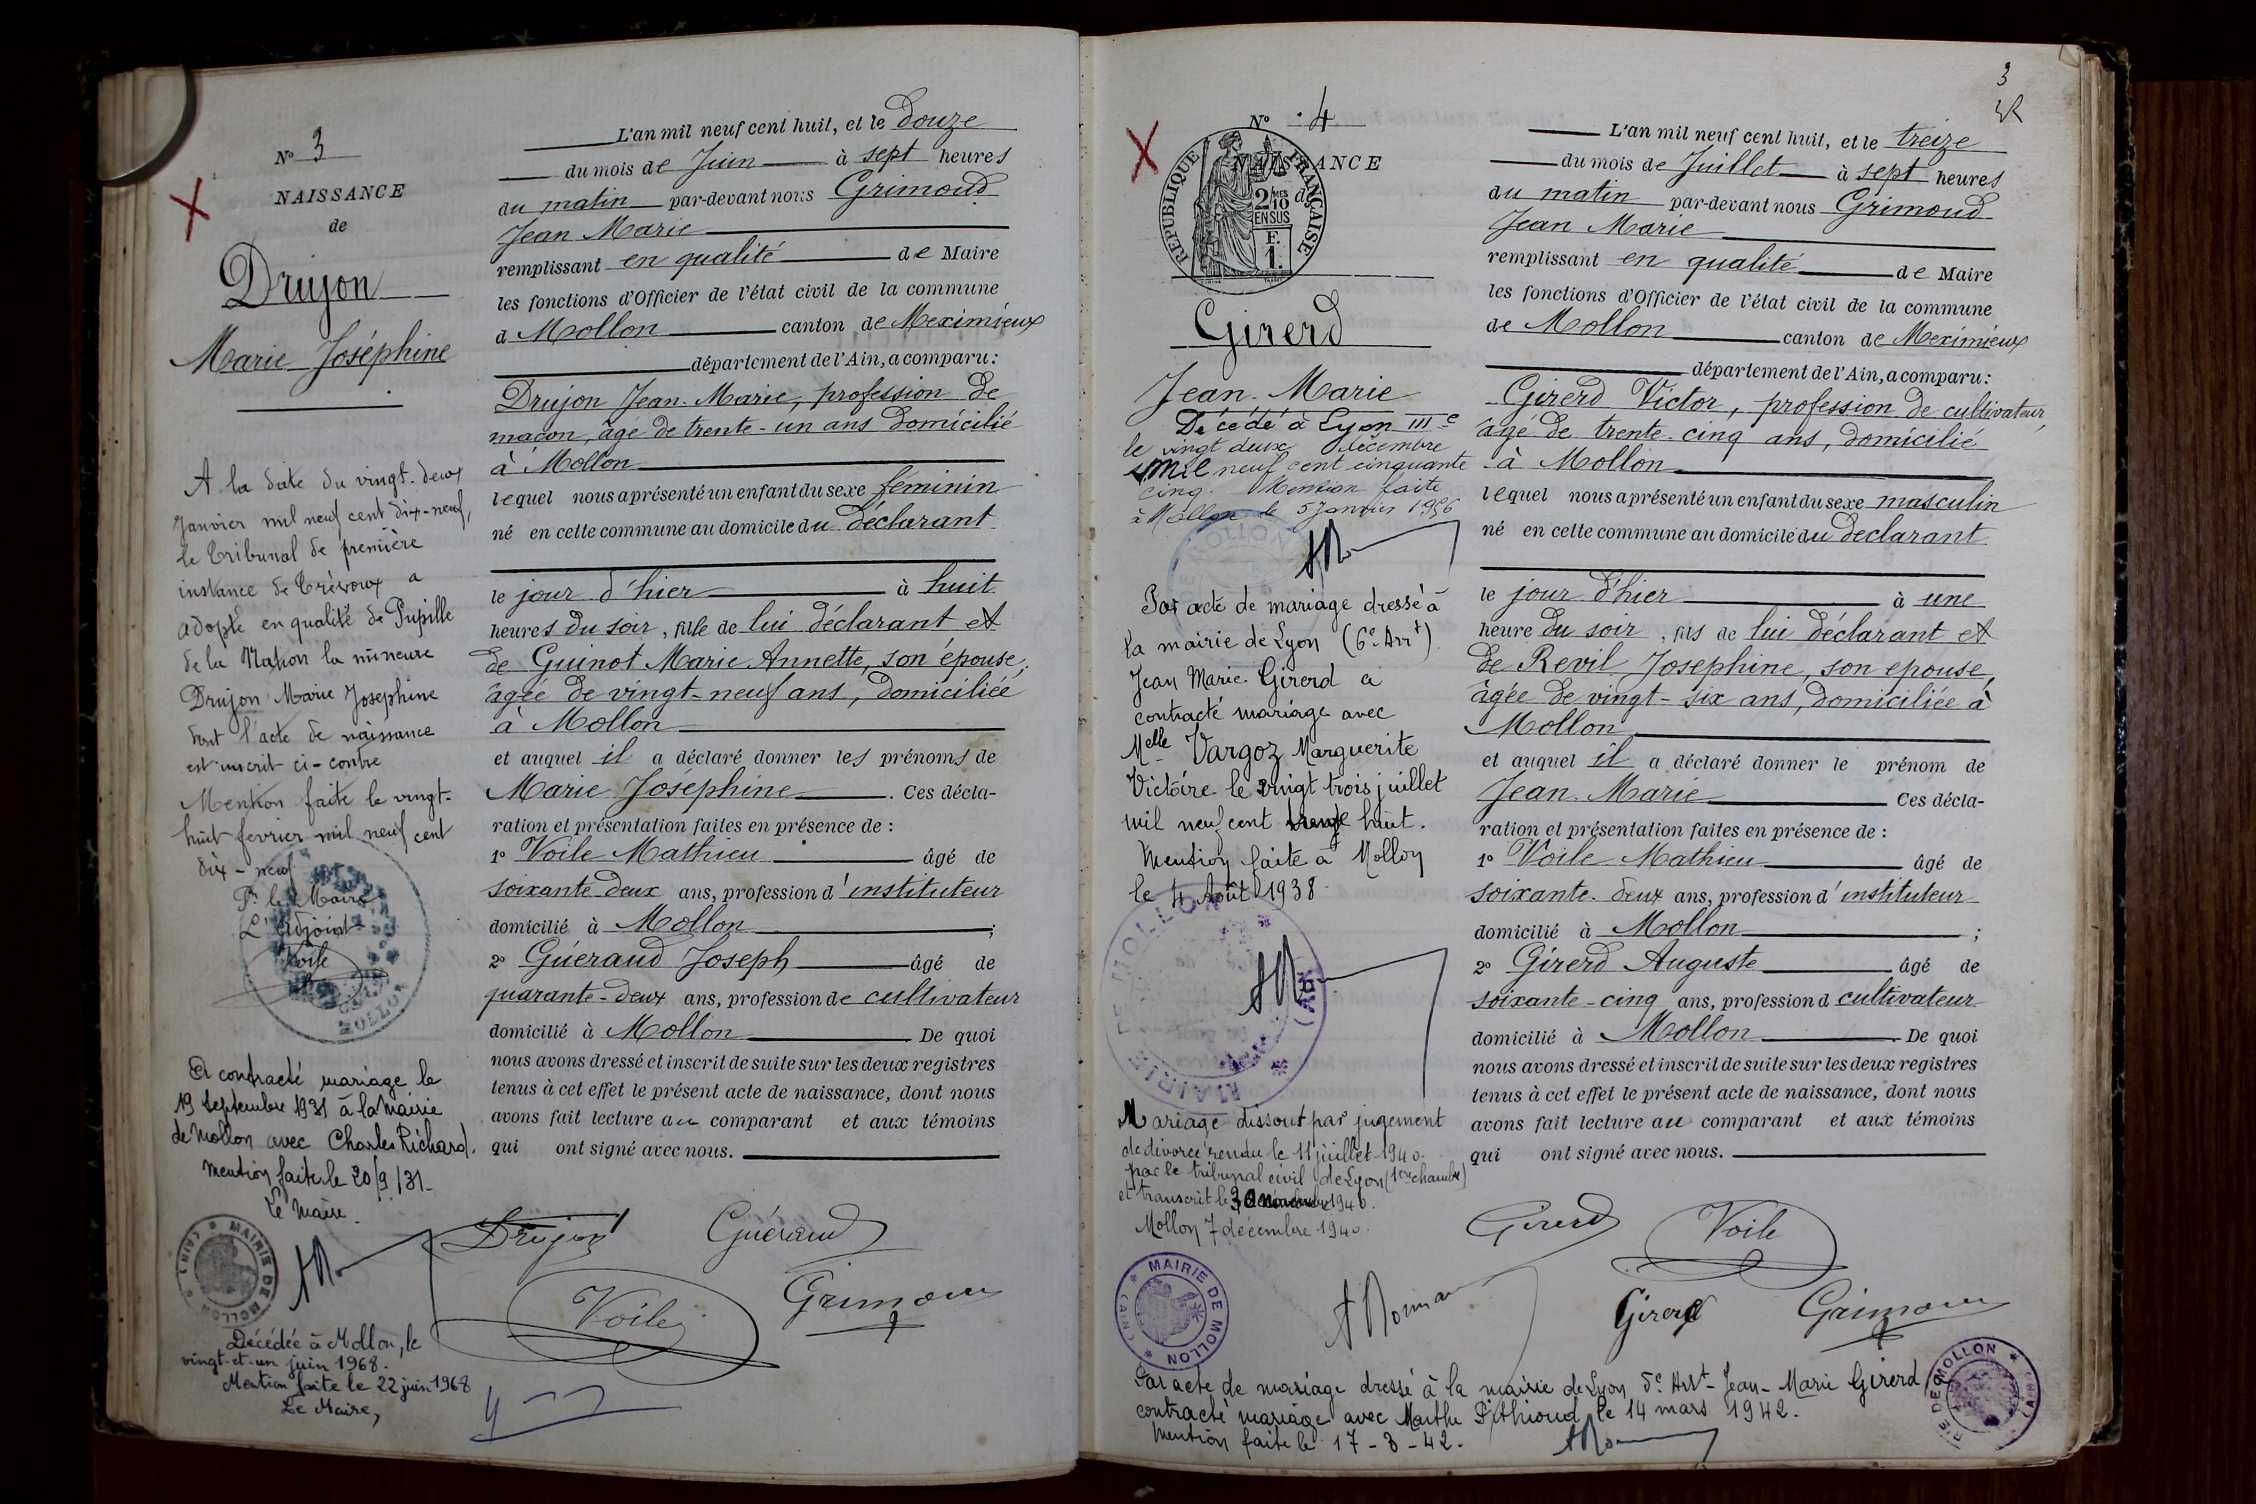 N° 3
NAISSANCE
de
Drujon
Marie Joséphine
A la date du vingt-deux
Janvier mil neuf cent dix-neuf,
le Tribunal de première
instance de Trévoux a
adopté en qualité de Pupille
de la Nation la mineure
Drujon Marie Josephine
dont l'acte de naissance
est inscrit ci-contre
Mention faite le vingt-
huit fevrier mil neuf cent
dix-neuf
Pr le Maire
L'Adjoint
Voile
MOLLON
A contracté mariage le
19 Septembre 1931 à la Mairie
de Mollon avec Charles Richard.
Mention faite le 20/9/31-
Le Maire.
MAIRIE DE MOLLON * (AIN) *
Décédée à Mollon, le
vingt-et-un juin 1968.
Mention faite le 22 juin 1968
Le Maire,
L'an mil neuf cent huit, et le douze
du mois de Juin à sept heures
du matin par-devant nous Grimoud
Jean Marie
remplissant en qualité de Maire
les fonctions d'Officier de l'état civil de la commune
d Mollon canton de Meximieux
département de l'Ain, a comparu:
Drujon Jean-Marie, profession de
maçon, âge de trente-un ans domicilié
à Mollon
lequel nous a présenté un enfant du sexe féminin
né en cette commune au domicile du déclarant
le jour d'hier à huit
heures du soir, fille de lui déclarant et
de Guinot Marie Annette, son épouse,
âgée de vingt-neuf ans, domiciliée
à Mollon
et auquel il a déclaré donner les prénoms de
Marie Joséphine. Ces décla-
ration et présentation faites en présence de :
1° Voile Mathieu âgé de
soixante deux ans, profession d'instituteur
domicilié à Mollon ;
2° Guéraud Joseph âgé de
quarante-deux ans, profession de cultivateur
domicilié à Mollon De quoi
nous avons dressé et inscrit de suite sur les deux registres
tenus à cet effet le présent acte de naissance, dont nous
avons fait lecture au comparant et aux témoins
qui ont signé avec nous.
Drujon Guéraud
Voile Grimoud
3
N° 4
NAISSANCE
de
REPUBLIQUE FRANÇAISE
2/10 MES
EN SUS
F.
1.
Girerd
Jean-Marie
Décédé à Lyon IIIe
le vingt deux décembre
mil neuf cent cinquante
cinq. Mention faite
à Mollon le 5 Janvier 1956
MOLLON
Par acte de mariage dressé à
la mairie de Lyon (6e Arrt)
Jean Marie Girerd a
contracté mariage avec
Melle Vargoz Marguerite
Victoire le vingt trois juillet
mil neuf cent trente huit.
Mention faite à Mollon
le 4 Août 1938
MAIRIE DE MOLLON * (AIN) *
Mariage dissout par jugement
de divorce rendu le 11 juillet 1940.
par le tribunal civil de Lyon (1ère chambre)
et transcrit le 30 novembre 1940.
Mollon 7 décembre 1940.
* MAIRIE DE MOLLON * (AIN)
L'an mil neuf cent huit, et le treize
du mois de Juillet à sept heures
du matin par-devant nous Grimoud
Jean Marie
remplissant en qualité de Maire
les fonctions d'Officier de l'état civil de la commune
de Mollon canton de Meximieux
département de l'Ain, a comparu:
Girerd Victor, profession de cultivateur,
âgé de trente-cinq ans, domicilié
à Mollon
lequel nous a présenté un enfant du sexe masculin
né en cette commune au domicile du declarant
le jour d'hier à une
heure du soir, fils de lui déclarant et
de Revil Josephine, son epouse,
âgée de vingt-six ans, domiciliée à
Mollon
et auquel il a déclaré donner le prénom de
Jean-Marie Ces décla-
ration et présentation faites en présence de :
1° Voile Mathieu âgé de
soixante-deux ans, profession d'instituteur
domicilié à Mollon ;
2° Girerd Auguste âgé de
soixante-cinq ans, profession d cultivateur
domicilié à Mollon De quoi
nous avons dressé et inscrit de suite sur les deux registres
tenus à cet effet le présent acte de naissance, dont nous
avons fait lecture au comparant et aux témoins
qui ont signé avec nous.
Girerd Voile
Girerd Grimoud
Par acte de mariage dressé à la mairie de Lyon 5e Arrt-Jean-Marie Girerd
contracté mariage avec Marthe Pithioud le 14 mars 1942.
Mention faite le 17-3-42.
MAIRIE DE MOLLON * (AIN)